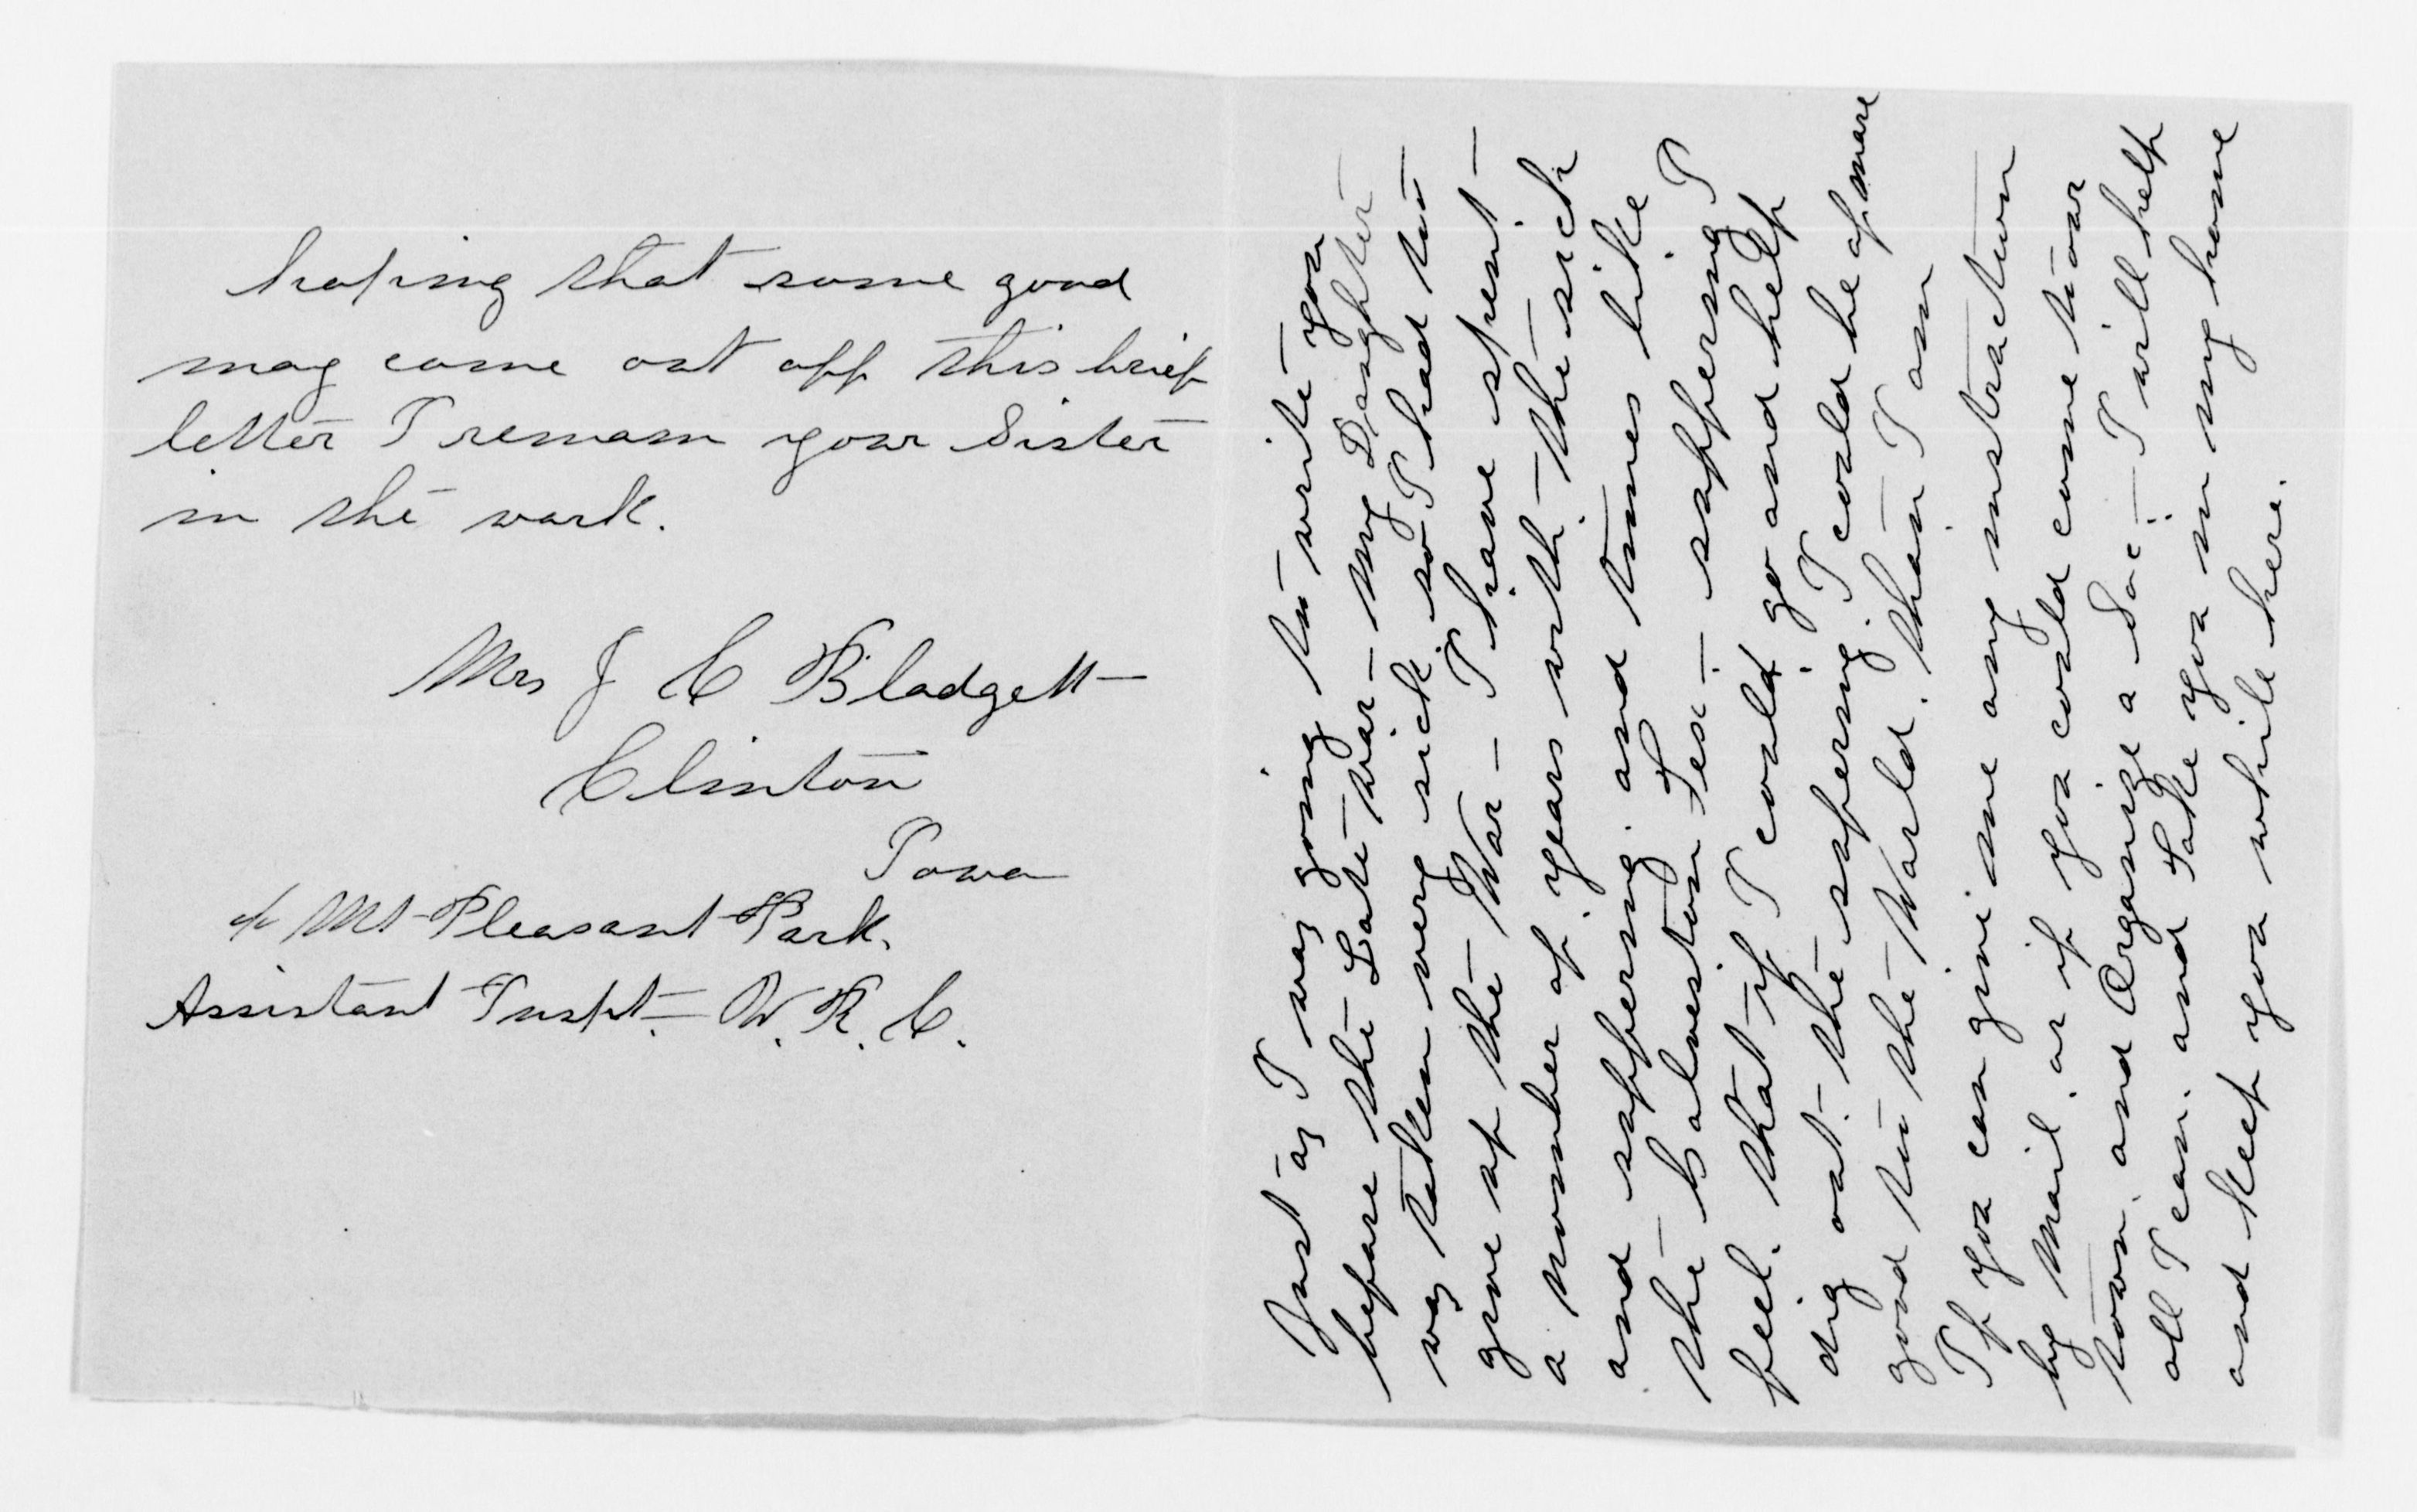 Just as I was going to write you
before the Late war - My Daughter
was taken very sick so I had to
give up the War - I have spent -
a number of years with the sick
and suffering. and times like
the Galveston Tex - suffering I
feel. that if I could go and help
dig out the suffering. I could be of more
good to the World. than I am
If you can give me any instruction
by Mail. or if you could come to our
town. and Organize a Soc - I will help
all I can. and Take you in my home
and Keep you while here.
hoping that some good
may come out off this brief
letter I remain your Sister
in the work.
Mrs J C Blodgett
Clinton
Iowa
c/o Mt Pleasant Park.
Assistant Inspt. W. R. C.